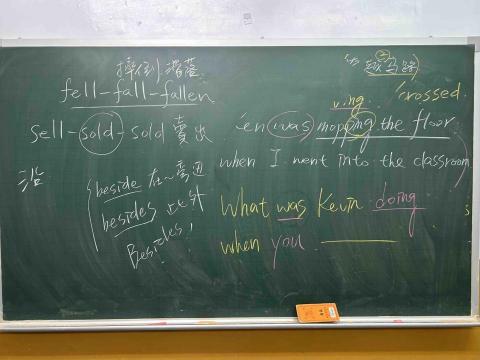 摔倒.掉落
fell-fall-fallen
sell-sold-sold 賣出
沿
beside 在~旁邊
besides 此外
Besides,
② 過馬路
ving. crossed.
en was mopping the floor
when I went into the classroom
What was Kevin doing
when you